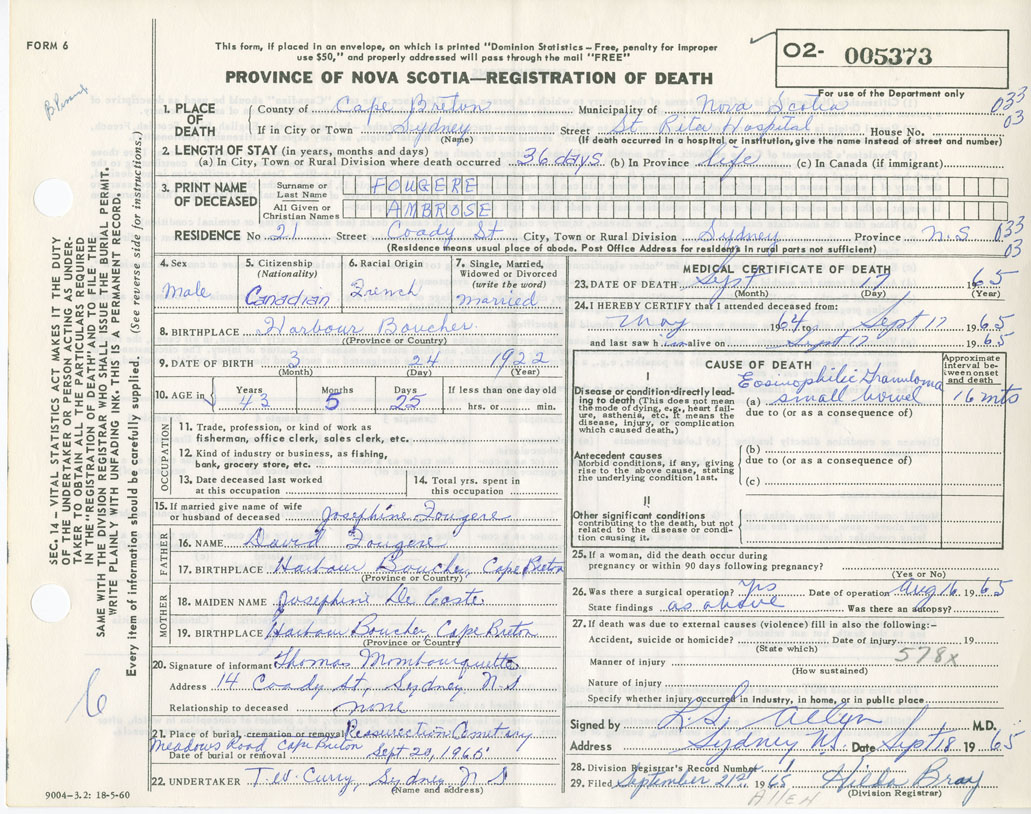 FORM 6
This form, if placed in an envelope, on which is printed "Dominion Statistics – Free, penalty for improper
use $50," and properly addressed will pass through the mail "FREE"
PROVINCE OF NOVA SCOTIA—REGISTRATION OF DEATH
O2- 005373
For use of the Department only
033
03
1. PLACE OF DEATH
County of Cape Breton Municipality of Nova Scotia
If in City or Town Sydney Street St Rita Hospital House No.
(Name) (If death occurred in a hospital or institution, give the name instead of street and number)
2. LENGTH OF STAY (in years, months and days)
(a) In City, Town or Rural Division where death occurred 36 days (b) In Province life (c) In Canada (if immigrant)
3. PRINT NAME OF DECEASED
Surname or Last Name FOUGERE
All Given or Christian Names AMBROSE
RESIDENCE No 21 Street Coady St City, Town or Rural Division Sydney Province N.S 033
(Residence means usual place of abode. Post Office Address for residents in rural parts not sufficient) 03
4. Sex
Male
5. Citizenship
(Nationality)
Canadian
6. Racial Origin
French
7. Single, Married,
Widowed or Divorced
(write the word)
married
8. BIRTHPLACE Harbour Boucher
(Province or Country)
9. DATE OF BIRTH 3 24 1922
(Month) (Day) (Year)
10. AGE in
Years Months Days If less than one day old
43 5 25 hrs. or min.
OCCUPATION
11. Trade, profession, or kind of work as
fisherman, office clerk, sales clerk, etc.
12. Kind of industry or business, as fishing,
bank, grocery store, etc.
13. Date deceased last worked
at this occupation
14. Total yrs. spent in
this occupation
15. If married give name of wife
or husband of deceased Josephine Fougere
FATHER
16. NAME David Fougere
17. BIRTHPLACE Harbour Boucher, Cape Breton
(Province or Country)
MOTHER
18. MAIDEN NAME Josephine De Coste
19. BIRTHPLACE Harbour Boucher, Cape Breton
(Province or Country)
20. Signature of informant Thomas Mombourquette
Address 14 Coady St, Sydney N.S
Relationship to deceased none
21. Place of burial, cremation or removal Resurrection Cemetary
Meadows Road Cape Breton
Date of burial or removal Sept 20, 1965
22. UNDERTAKER T.W. Curry, Sydney N S
(Name and address)
9004-3.2: 18-5-60
MEDICAL CERTIFICATE OF DEATH
23. DATE OF DEATH Sept 17 1965
(Month) (Day) (Year)
24. I HEREBY CERTIFY that I attended deceased from:
May 1964 to Sept 17 1965
and last saw him alive on Sept 17 1965
CAUSE OF DEATH
Approximate interval between onset and death
I
Disease or condition directly leading to death (This does not mean the mode of dying, e.g., heart failure, asthenia, etc. It means the disease, injury, or complication which caused death.)
Eosinophilic Granuloma
(a) small bowel 16 mts
due to (or as a consequence of)
Antecedent causes
Morbid conditions, if any, giving rise to the above cause, stating the underlying condition last.
(b)
due to (or as a consequence of)
(c)
II
Other significant conditions
contributing to the death, but not related to the disease or condition causing it.
25. If a woman, did the death occur during
pregnancy or within 90 days following pregnancy?
(Yes or No)
26. Was there surgical operation? yes Date of operation Aug 16 1965
State findings as above Was there an autopsy?
27. If death was due to external causes (violence) fill in also the following:–
Accident, suicide or homicide? Date of injury 19
(State which)
578x
Manner of injury
(How sustained)
Nature of injury
Specify whether injury occurred in industry, in home, or in public place
Signed by L.S. Allen M.D.
Address Sydney NS Date Sept 18 1965
28. Division Registrar's Record Number
29. Filed September 21st 1965 Hilda Bray
(Division Registrar)
Allen
SEC. 14 – VITAL STATISTICS ACT MAKES IT THE DUTY
OF THE UNDERTAKER OR PERSON ACTING AS UNDER-
TAKER TO OBTAIN ALL THE PARTICULARS REQUIRED
IN THE "REGISTRATION OF DEATH" AND TO FILE THE
SAME WITH THE DIVISION REGISTRAR WHO SHALL ISSUE THE BURIAL PERMIT.
WRITE PLAINLY WITH UNFADING INK. THIS IS A PERMANENT RECORD.
Every item of information should be carefully supplied. (See reverse side for instructions.)
6